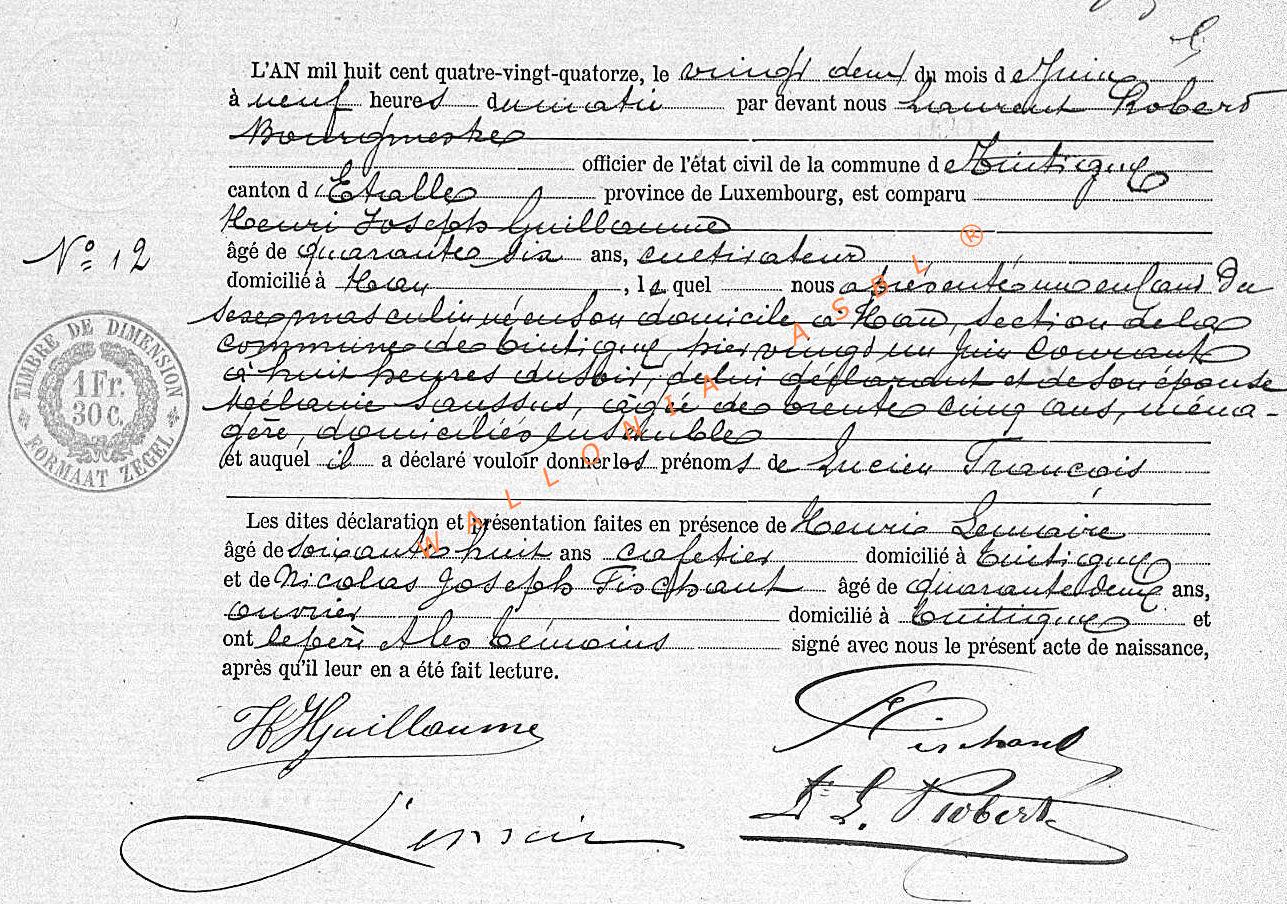 L'AN mil huit cent quatre-vingt-quatorze, le vingt deux du mois de Juin
à neuf heures du matin par devant nous Laurent Robert
Bourgmestre
officier de l'état civil de la commune de Tintigny
canton d'Etalle province de Luxembourg, est comparu
Henri Joseph Guillaume
âgé de quarante six ans, cultivateur
N° 12
domicilié à Han, le quel nous a présenté un enfant du
sexe masculin né en son domicile à Han, section de la
commune de Tintigny, hier vingt un Juin courant
à huit heures du soir, de lui déclarant et de son épouse
Mélanie Saussus, âgée de trente cinq ans, ména-
gère, domiciliés ensemble
et auquel il a déclaré vouloir donner les prénoms de Lucien François
TIMBRE DE DIMENSION
1 Fr.
30 C.
FORMAAT ZEGEL
Les dites déclaration et présentation faites en présence de Henri Lemaire
âgé de soixante huit ans cafetier domicilié à Tintigny
et de Nicolas Joseph Fischant âgé de quarante deux ans,
ouvrier domicilié à Tintigny et
ont le père & les témoins signé avec nous le présent acte de naissance,
après qu'il leur en a été fait lecture.
HJGuillaume
Fischant
L. Robert
WALLONIA ASBL ®